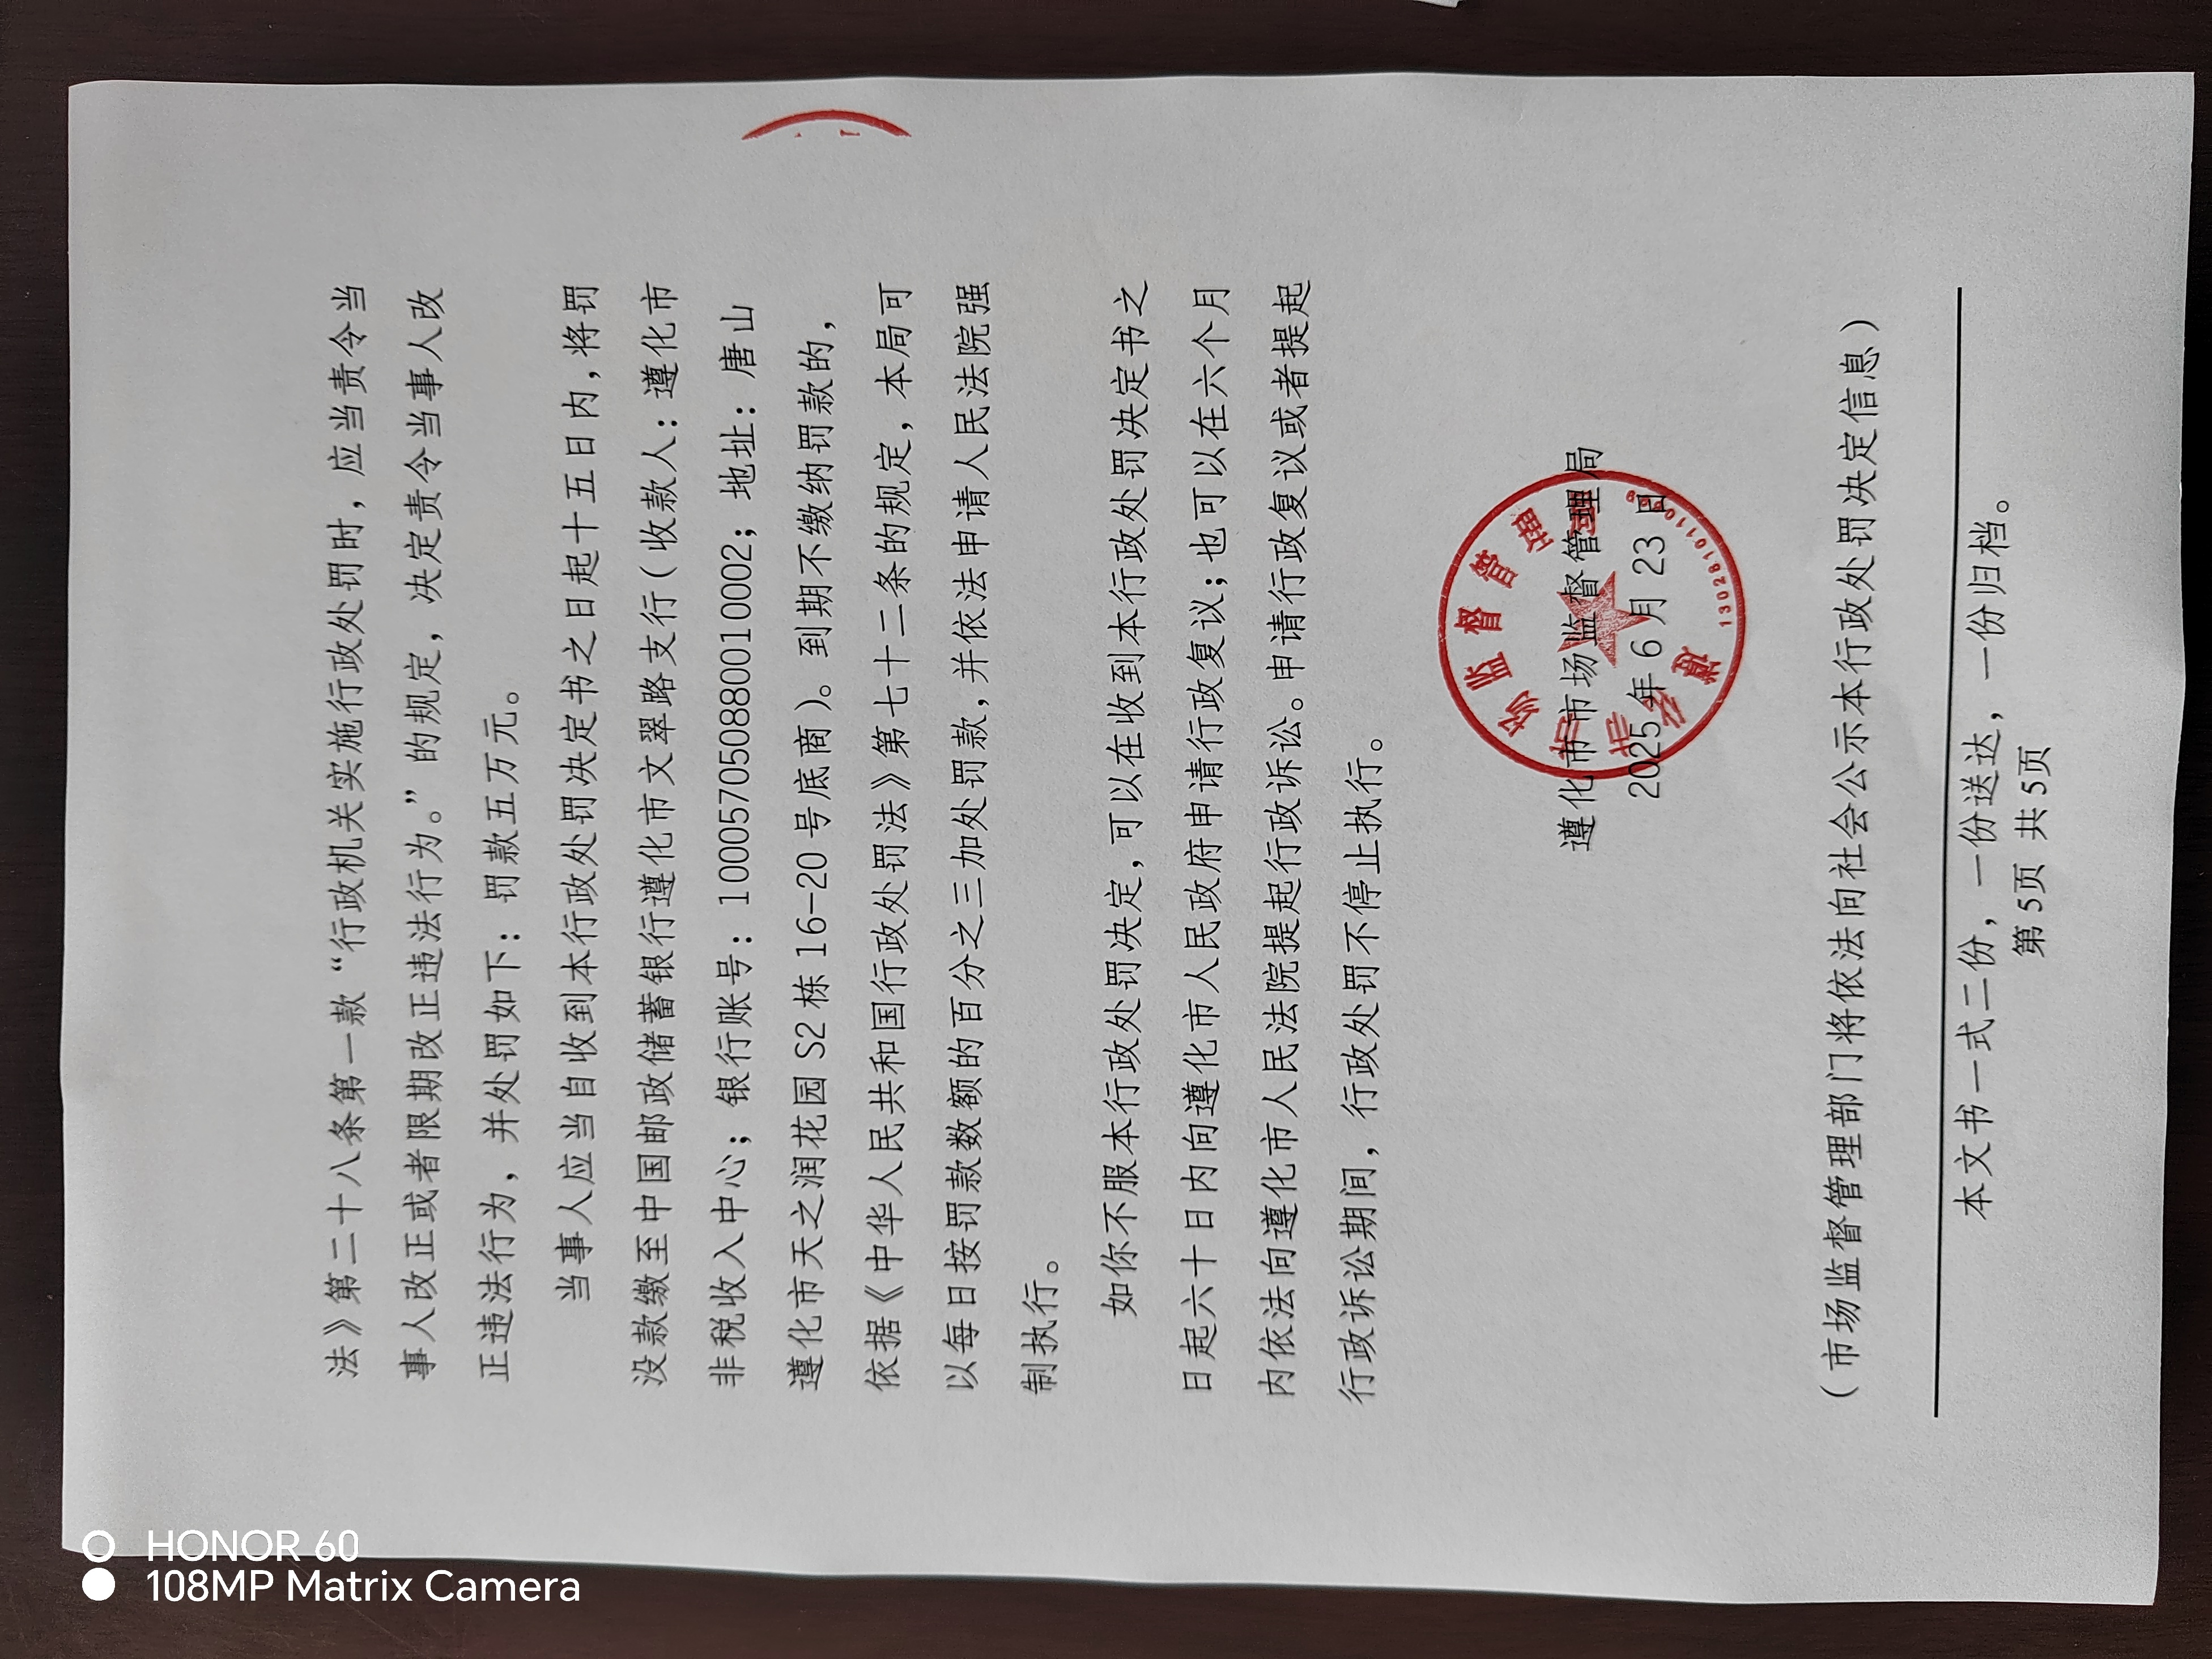 法》第二十八条第一款“行政机关实施行政处罚时，应当责令当
事人改正或者限期改正违法行为。”的规定，决定责令当事人改
正违法行为，并处罚如下：罚款五万元。
当事人应当自收到本行政处罚决定书之日起十五日内,将罚
没款缴至中国邮政储蓄银行遵化市文翠路支行（收款人：遵化市
非税收入中心；银行账号：100057050880010002；地址：唐山
遵化市天之润花园S2栋16-20号底商）。到期不缴纳罚款的，
依据《中华人民共和国行政处罚法》第七十二条的规定，本局可
以每日按罚款数额的百分之三加处罚款,并依法申请人民法院强
制执行。
如你不服本行政处罚决定,可以在收到本行政处罚决定书之
日起六十日内向遵化市人民政府申请行政复议;也可以在六个月
内依法向遵化市人民法院提起行政诉讼。申请行政复议或者提起
行政诉讼期间，行政处罚不停止执行。
遵化市市场监督管理局
2025年6月23日
遵化市市场监督管理局
（市场监督管理部门将依法向社会公示本行政处罚决定信息）
本文书一式二份，一份送达，一份归档。
第5页 共5页
HONOR 60
108MP Matrix Camera